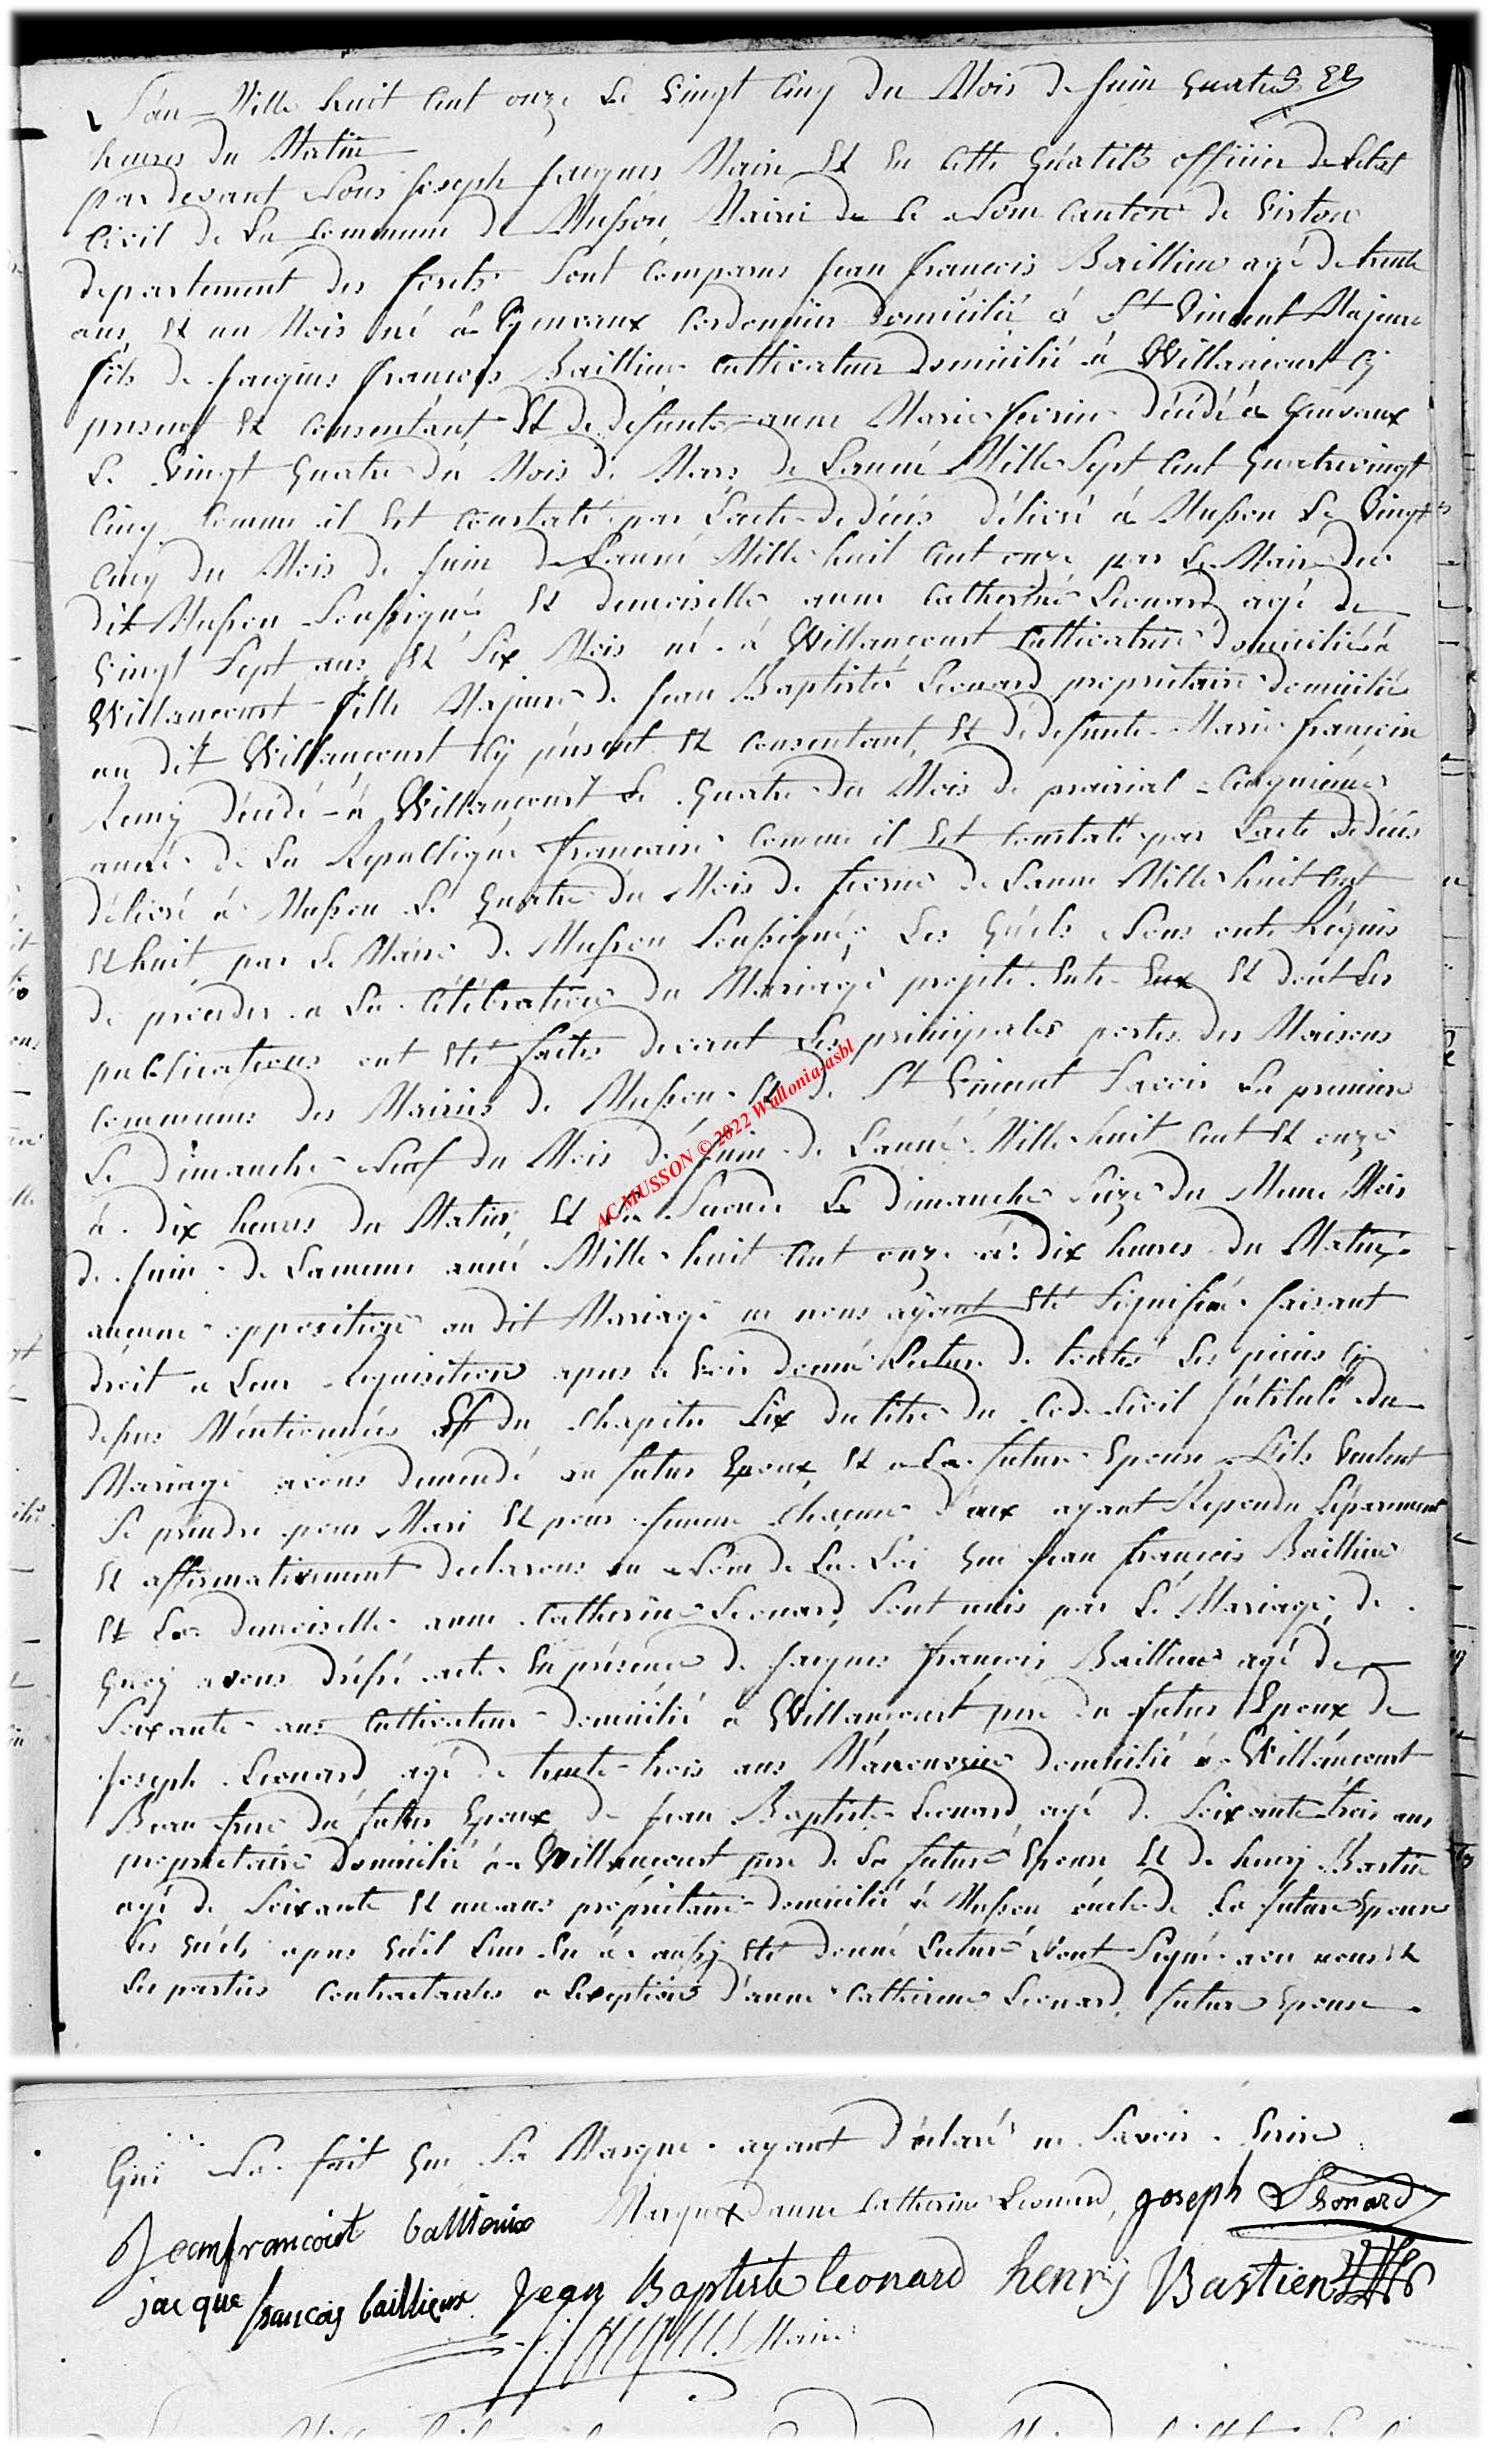 L'an Mille huit Cent onze Le Vingt Cinq du Mois de Juin Quatre
heures du Matin
par devant Nous Joseph Jacques Maire Et En Cette Qualité officier de L'etat
Civil de La Commune de Musson Mairie de Ce Nom Canton de Virton
departement des forets Sont Comparus Jean francois Baillieux agé de trente
ans Et un Mois né á Cordonnier Domicilié á St Vincent Majeure
fils de Jacques francois Baillieux Cultivateur domicilié á Willancourt Cy
present Et Consentant Et de defunte anne Marie décédé á
Le Vingt Quatre du Mois de Mars de L'année Mille Sept Cent Quatrevingt
Cinq Comme il Est Constaté par L'acte de décés délivré á Musson Le Vingt
Cinq du Mois de Juin de L'anné Mille huit Cent onze par Le Maire du
dit Musson Soussigné Et demoiselle anne Catherine Leonard agé de
Vingt Sept ans Et Six Mois né á Willancourt Cultivatrice domicilié á
Willancourt fille Majeure de Jean Baptiste Leonard propriétaire domicilié
au dit Willancourt Cy présent Et Consentant Et de defunte Marie françoise
Remy décédé á Willancourt Le Quatre du Mois de prairial Cinquieme
année de La Republique francaise Comme il Est Constaté par L'acte de décés
délivré á Musson Le Quatre du Mois de de L'anné Mille huit Cent
Et huit par Le Maire de Musson Soussigné Les Quels Nous onts Réquis
de proceder a La Célébration du Mariage projeté Entre Eux Et dont Les
publications ont Eté faites devant Les principales portes des Maisons
Communes des Mairies de Musson Et de St Vincent Savoir La premiere
Le Dimanche Neuf du Mois de Juin de L'anné Mille huit Cent Et onze
á dix heures du Matin, Et La Seconde Le Dimanche Seize du Meme Mois
de Juin de La meme anné Mille huit Cent onze á dix heures du Matin
aucune opposition au dit Mariage ne nous ayant Eté Signifiée faisant
droit a Leur Requisition apres avoir donné Lecture de toutes Les pieces Cy
dessus Méntionnées Et du Chapitre Six du titre du Code Civil Intitulé du
Mariage avons demendé au futur Epoux Et a La future Epouse S'ils Veulent
Se prendre pour Mari Et pour femme Chacune d'eux ayant Repondu Séparement
Et affirmativement declarons au Nom de La Loi Que Jean francois Baillieux
Et La demoiselle anne Catherine Leonard Sont unis par Le Mariage de
Quoy avons dréssé acte En présence de Jacques francois Baillieux agé de
Soixante ans Cultivateur domicilié á Willancourt pere du futur Epoux de
Joseph Leonard agé de trente trois ans Manouvrier domicilié á Willancourt
Beau frere du futur Epoux de Jean Baptiste Leonard agé de Soixante trois ans
propriétaire Domicilié á Willancourt pere de La future Epouse Et de henry Bastien
agé de Soixante Et un ans propriétaire domicilié á Musson oncle de La future Epouse
Les Quels apres Qu'il Leur En á aussy Eté donné Lecture L'ont Signé avec nous Et
Les parties Contractantes a L'exception d'anne Catherine Leonard future Epouse
Qui N'a fait Que Sa Marque ayant déclaré ne Savoir Ecrire
Marque X d'anne Catherine Leonard, joseph Léonard
Jeanfrancoist baillieuix
jacque francois baillieux Jean Baptiste leonard henry Bastien
Maire
AC MUSSON © 2022 Wallonia-asbl